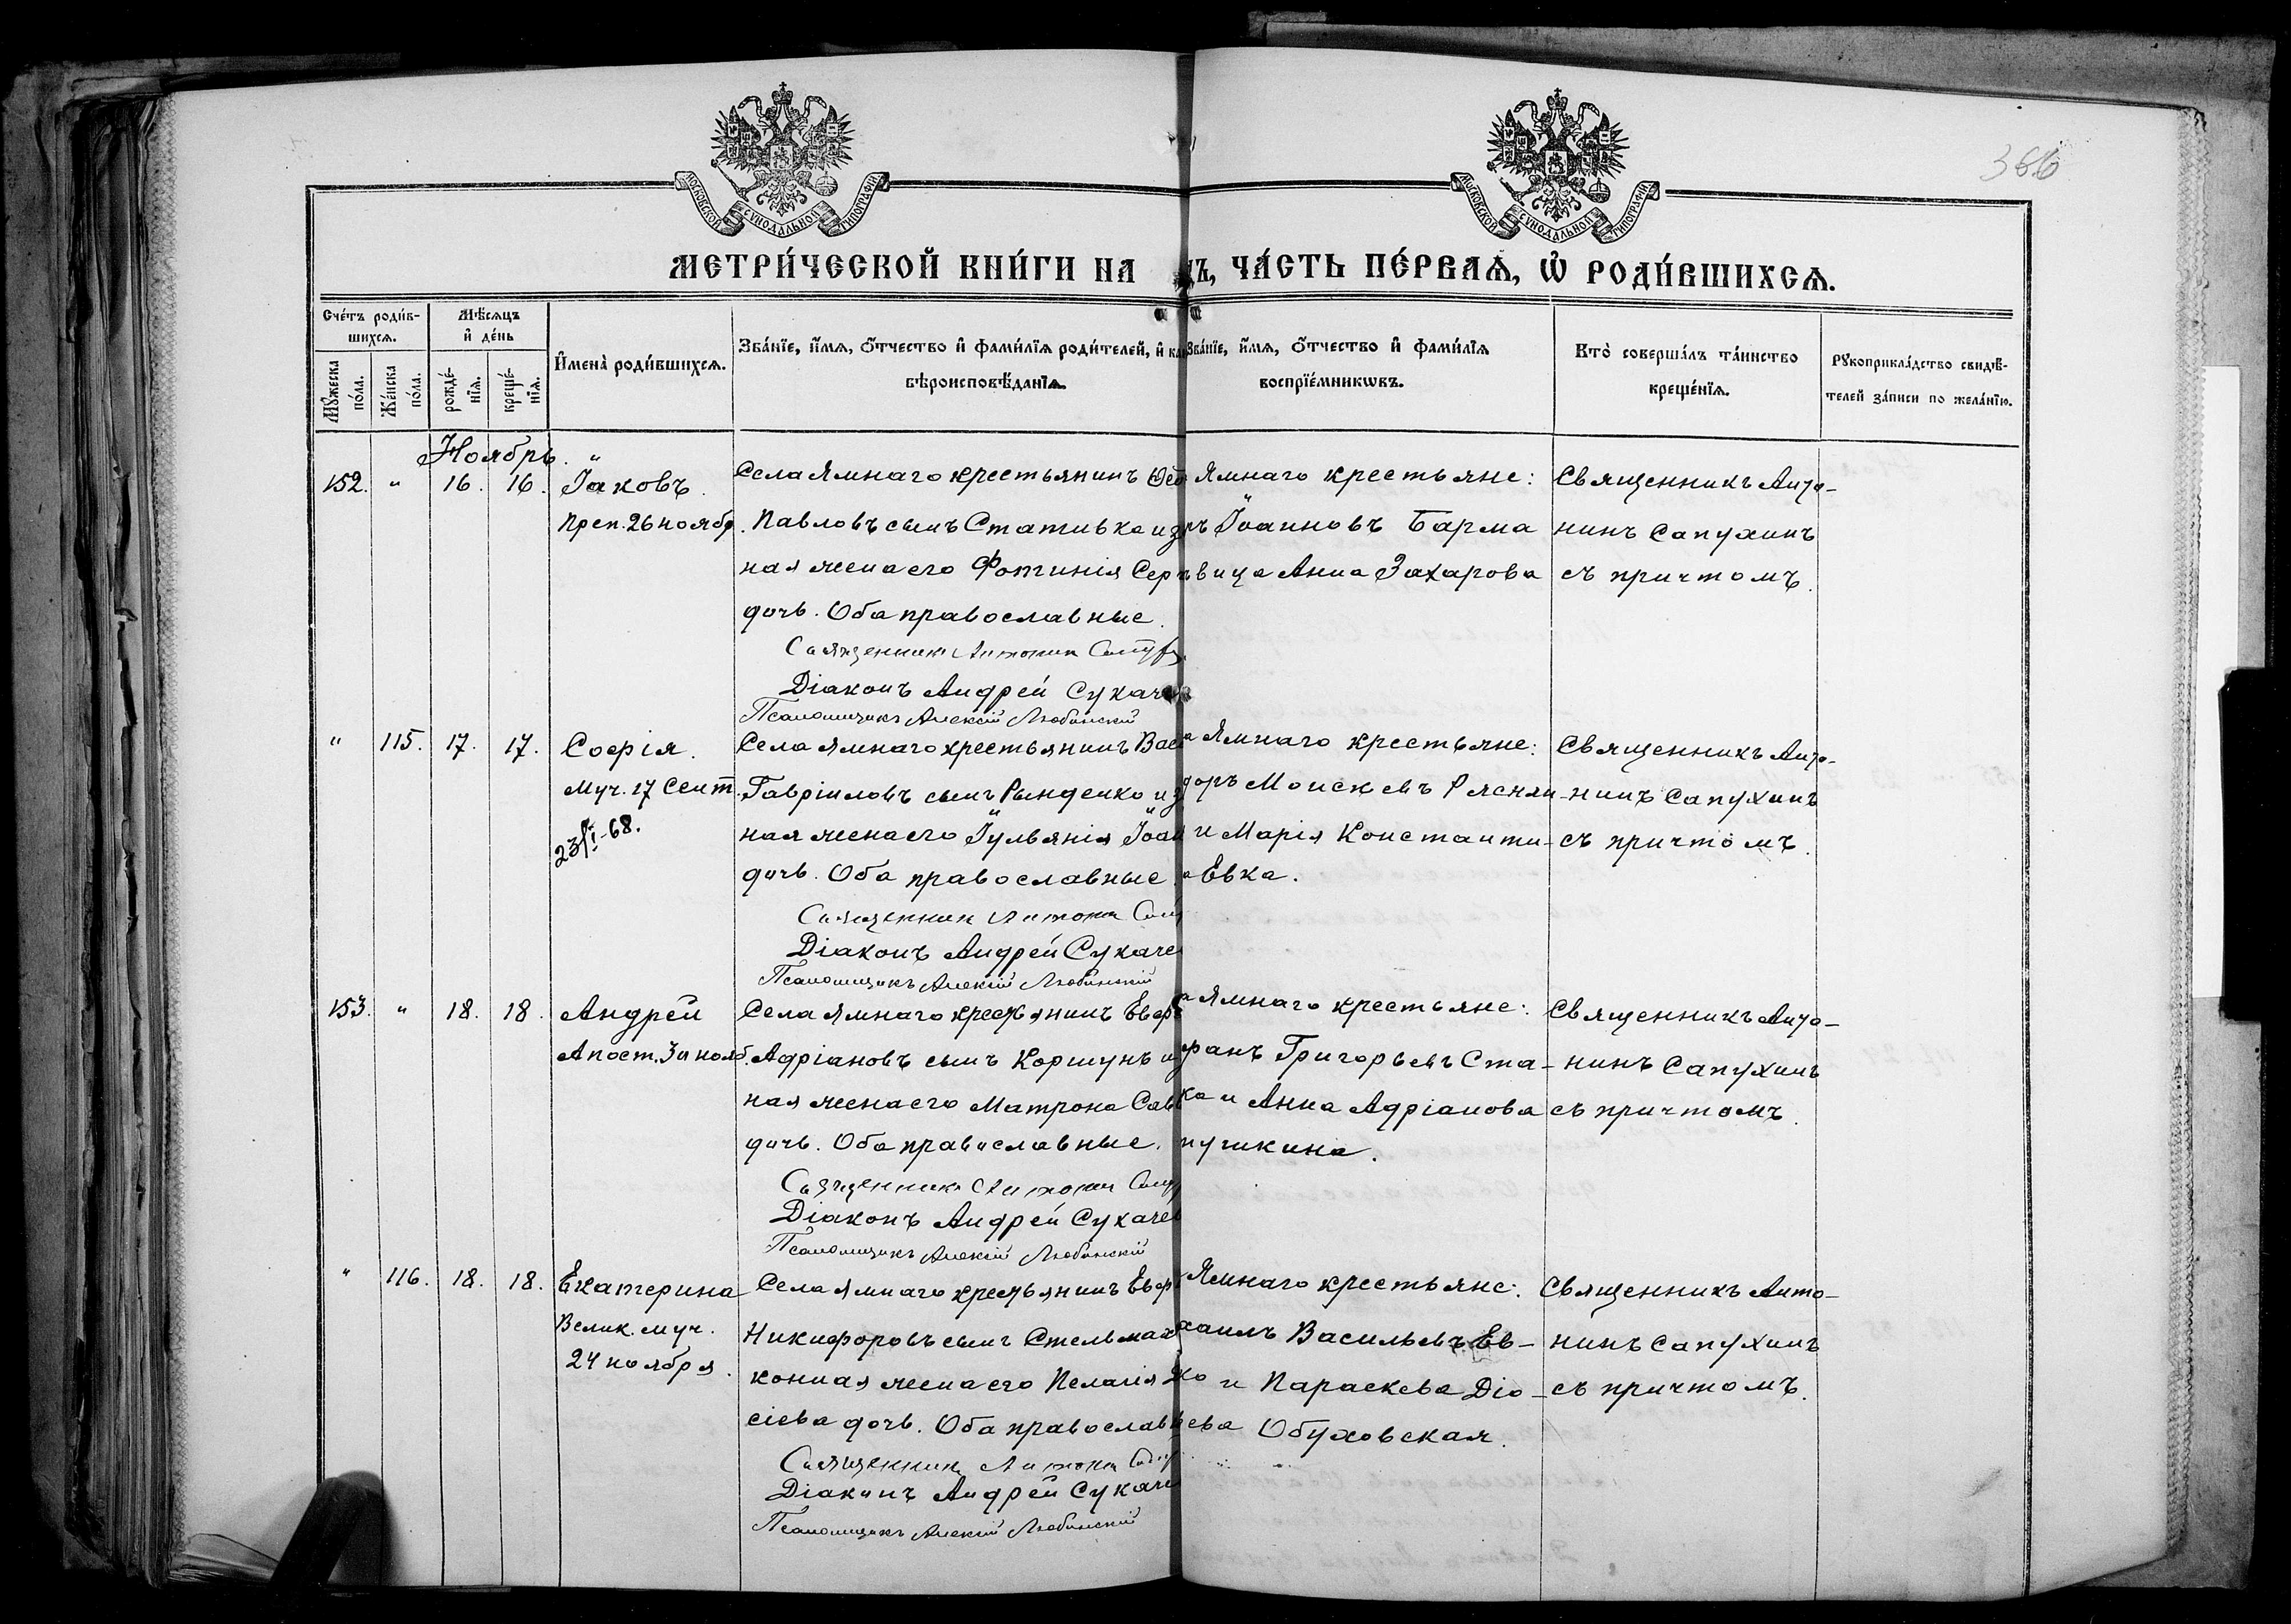 366
МОСКОВСКОЙ СѴНОДАЛЬНОЙ ТИПОГРАФІИ
МОСКОВСКОЙ СѴНОДАЛЬНОЙ ТИПОГРАФІИ
МЕТРИ́ЧЕСКОЙ КНИ́ГИ НА
ЧА́СТЬ ПЕ́РВАѦ, Ѿ РОДИ́ВШИХСѦ.
Сче́тъ роди́в-
шихсѧ.
Мꙋ́жеска
по́ла.
Же́нска
по́ла.
Мѣ́сѧцъ
и҆ де́нь
рожде́-
нїѧ.
креще́-
нїѧ.
И҆мена̀ роди́вшихсѧ.
Зва́нїе, и҆́мѧ, ѻ҆́тчество и҆ фами́лїѧ роди́телей, и҆
вѣроисповѣ́данїѧ.
Зва́нїе, и҆́мѧ, ѻ҆́тчество и҆ фами́лїѧ
воспрїе́мникѡвъ.
Кто̀ соверша́лъ та́инство
креще́нїѧ.
Рꙋкоприкла́дство свидѣ́-
телей за́писи по жела́нїю.
Ноябрь.
152. " 16. 16.
Іаковъ.
Преп. 26 ноябр.
Села Ямнаго крестьянинъ
Павловъ сынъ Стативка и
ная жена его Фотинія Сер
дочь. Оба православные.
Священникъ Антонин
Діаконъ Андрей Сукаче
Псаломщикъ Алексій Любинскій
Ямнаго крестьяне:
Іоанновъ Барма
вица Анна Захарова
Священникъ Анто-
нинъ Сапухинъ
съ причтомъ.
" 115. 17. 17.
Софія.
Муч. 17 Сент.
23/I-68.
Села Ямнаго крестьянинъ Васи
Гавріиловъ сынъ Рынденко и
ная жена его Іульянія Іоан
дочь. Оба православные.
Священник Антонин
Діаконъ Андрей Сукаче
Псаломщикъ Алексій Любинскій
Ямнаго крестьяне:
доръ Моисеевъ Реснян-
и Марія Константи-
Евка.
Священникъ Анто-
нинъ Сапухинъ
съ причтомъ.
153. " 18. 18.
Андрей
Апост. 30 нояб.
Села Ямнаго крестьянинъ Евф
Адріановъ сынъ Коршунъ и
ная жена его Матрона Сав
дочь. Оба православные.
Священник Антонин
Діаконъ Андрей Сукаче
Псаломщикъ Алексій Любинскій
Ямнаго крестьяне:
фанъ Григорьевъ Ста-
ка и Анна Адріанова
пушкина.
Священникъ Анто-
нинъ Сапухинъ
съ причтомъ.
" 116. 18. 18.
Екатерина
Велик. муч.
24 ноября.
Села Ямнаго крестьянинъ Евф
Никифоровъ сынъ Стельмах
конная жена его Пелагія
сіева дочь. Оба православ
Священник Антонин
Діаконъ Андрей Сукаче
Псаломщикъ Алексій Любинскій
Ямнаго крестьяне:
хаилъ Васильевъ Ев-
ко и Параскева Діо-
сева Обуховская.
Священникъ Анто-
нинъ Сапухинъ
съ причтомъ.